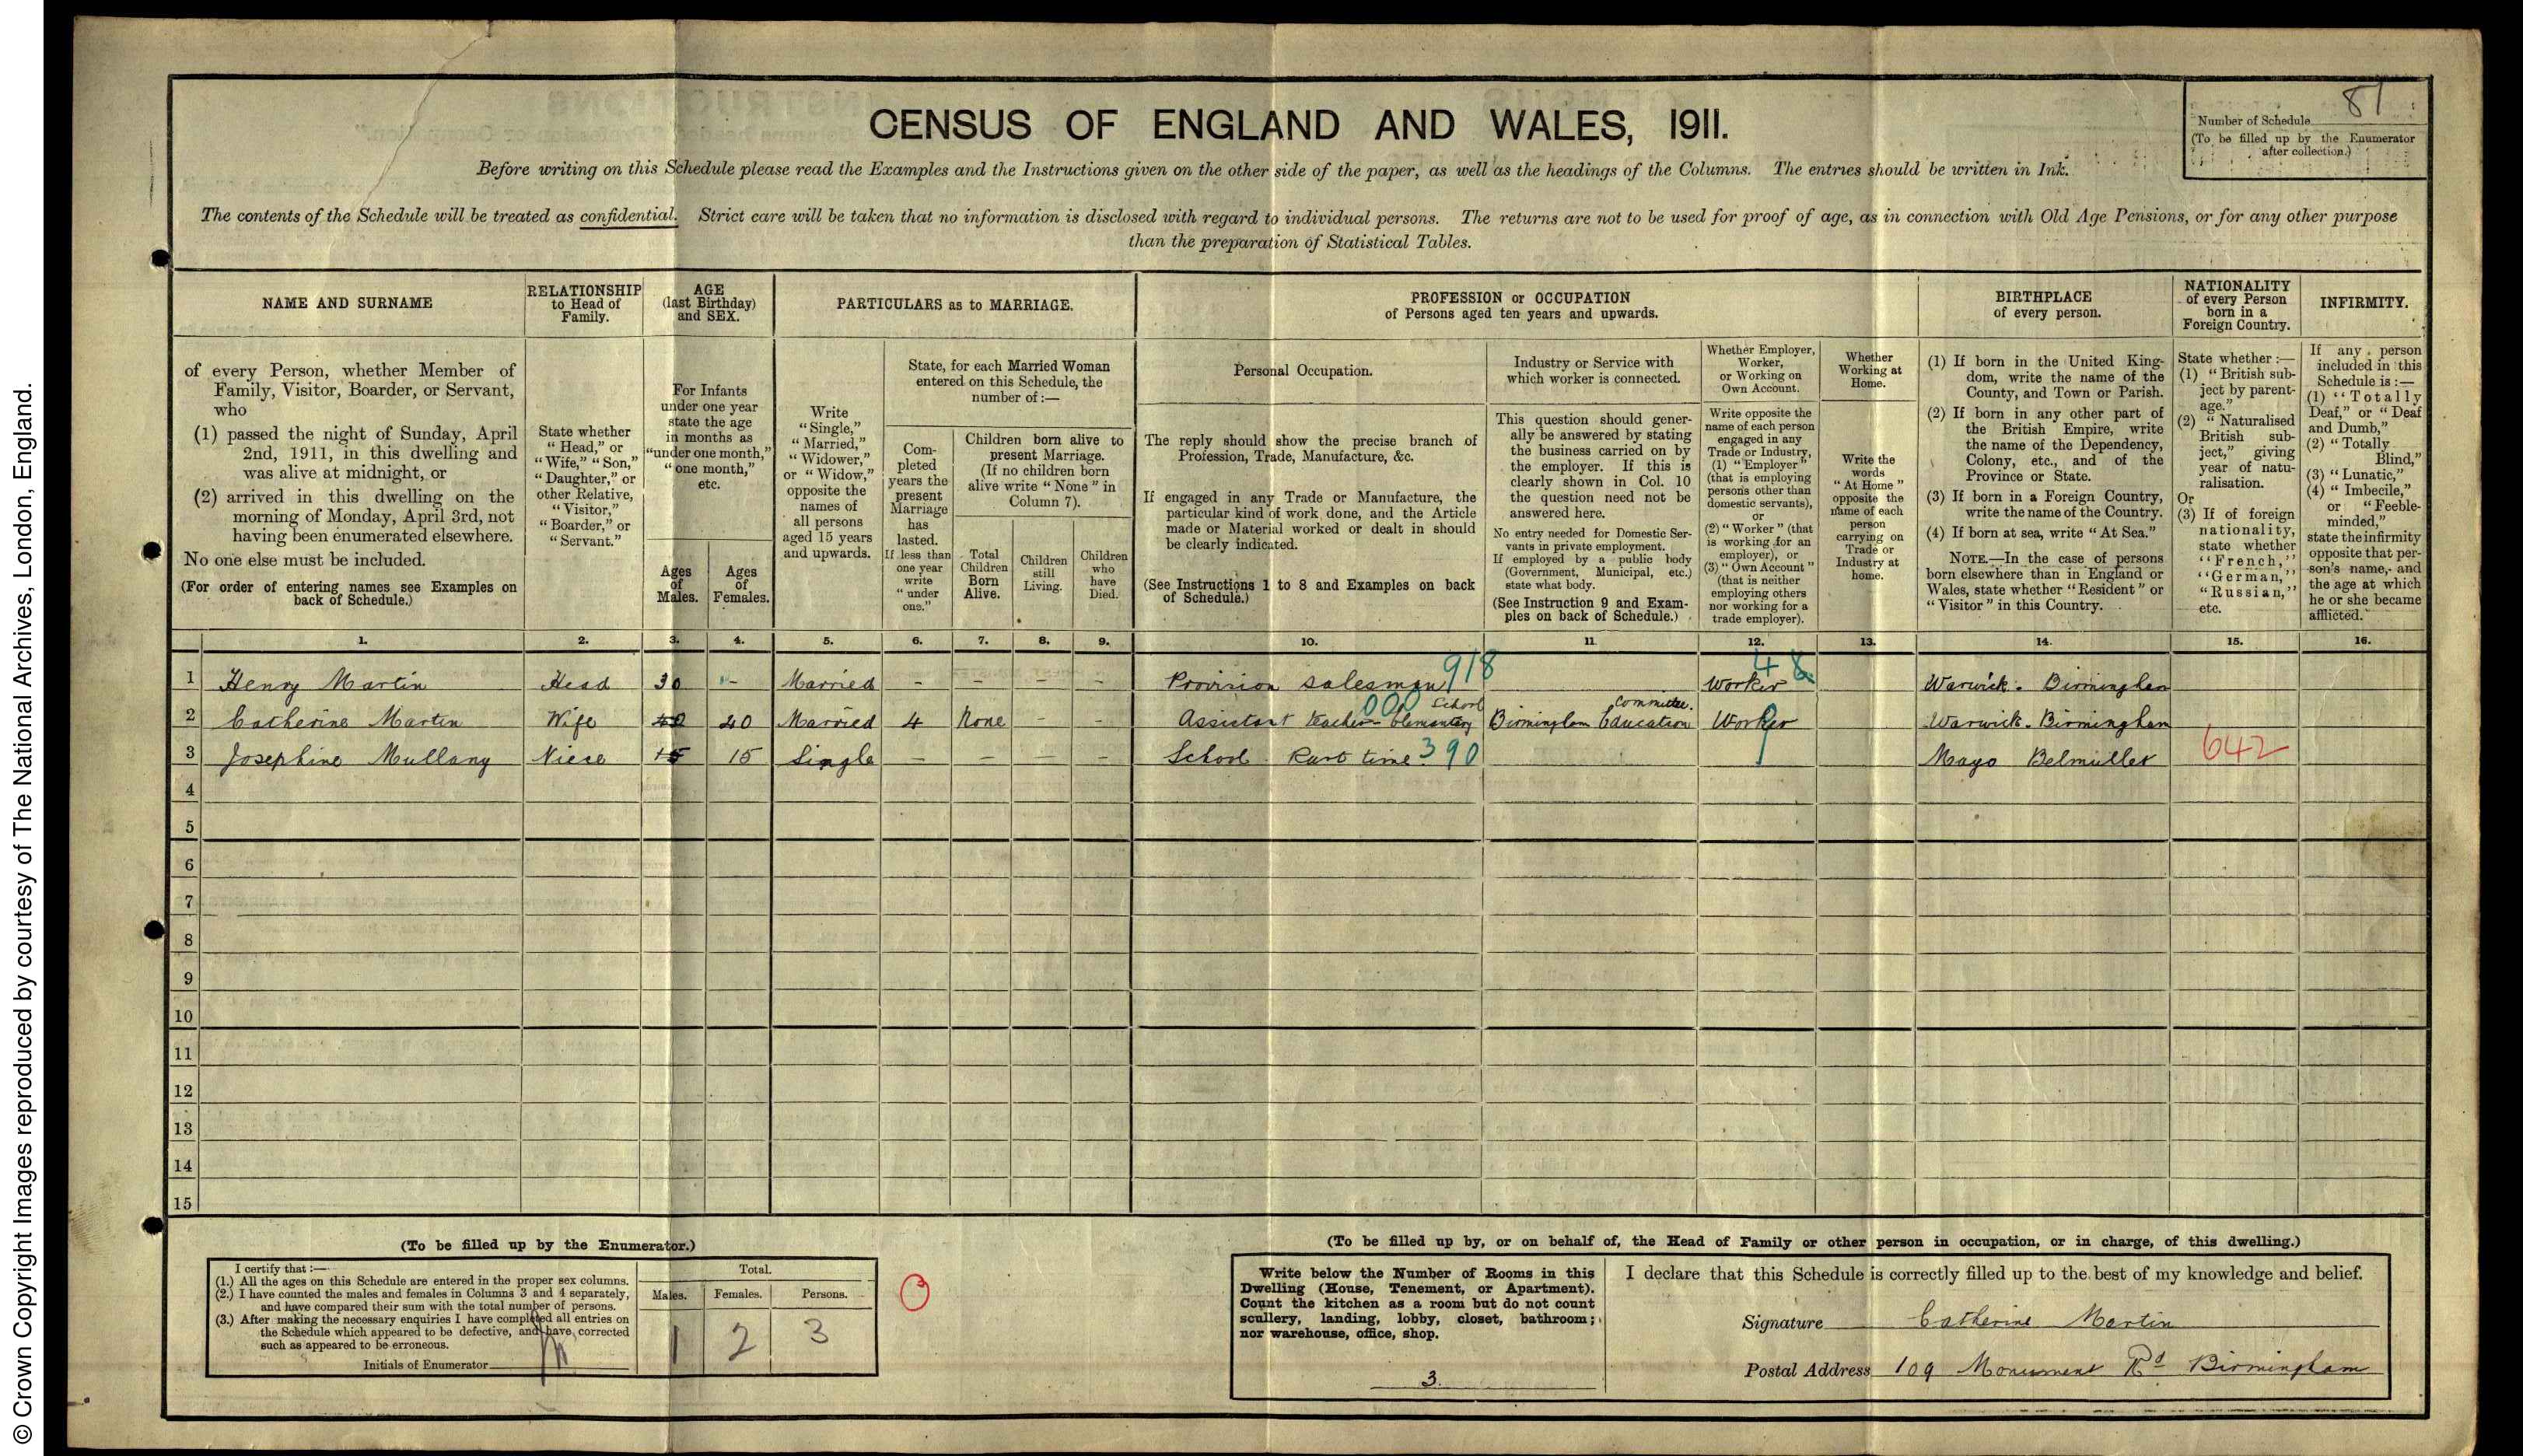 © Crown Copyright Images reproduced by courtesy of The National Archives, London, England.
CENSUS OF ENGLAND AND WALES, 1911.
81
Number of Schedule
(To be filled up by the Enumerator
after collection.)
Before writing on this Schedule please read the Examples and the Instructions given on the other side of the paper, as well as the headings of the Columns. The entries should be written in Ink.
The contents of the Schedule will be treated as confidential. Strict care will be taken that no information is disclosed with regard to individual persons. The returns are not to be used for proof of age, as in connection with Old Age Pensions, or for any other purpose
than the preparation of Statistical Tables.
NAME AND SURNAME
RELATIONSHIP
to Head of
Family.
AGE
(last Birthday)
and SEX.
PARTICULARS as to MARRIAGE.
PROFESSION or OCCUPATION
of Persons aged ten years and upwards.
BIRTHPLACE
of every person.
NATIONALITY
of every Person
born in a
Foreign Country.
INFIRMITY.
of every Person, whether Member of
Family, Visitor, Boarder, or Servant,
who
(1) passed the night of Sunday, April
2nd, 1911, in this dwelling and
was alive at midnight, or
(2) arrived in this dwelling on the
morning of Monday, April 3rd, not
having been enumerated elsewhere.
No one else must be included.
(For order of entering names see Examples on
back of Schedule.)
State whether
"Head," or
"Wife," "Son,"
"Daughter," or
other Relative,
"Visitor,"
"Boarder," or
"Servant."
For Infants
under one year
state the age
in months as
"under one month,"
"one month,"
etc.
Ages
of
Males.
Ages
of
Females.
Write
"Single,"
"Married,"
"Widower,"
or "Widow,"
opposite the
names of
all persons
aged 15 years
and upwards.
State, for each Married Woman
entered on this Schedule, the
number of :—
Com-
pleted
years the
present
Marriage
has
lasted.
If less than
one year
write
"under
one."
Children born alive to
present Marriage.
(If no children born
alive write "None" in
Column 7).
Total
Children
Born
Alive.
Children
still
Living.
Children
who
have
Died.
Personal Occupation.
The reply should show the precise branch of
Profession, Trade, Manufacture, &c.
If engaged in any Trade or Manufacture, the
particular kind of work done, and the Article
made or Material worked or dealt in should
be clearly indicated.
(See Instructions 1 to 8 and Examples on back
of Schedule.)
Industry or Service with
which worker is connected.
This question should gener-
ally be answered by stating
the business carried on by
the employer. If this is
clearly shown in Col. 10
the question need not be
answered here.
No entry needed for Domestic Ser-
vants in private employment.
If employed by a public body
(Government, Municipal, etc.)
state what body.
(See Instruction 9 and Exam-
ples on back of Schedule.)
Whether Employer,
Worker,
or Working on
Own Account.
Write opposite the
name of each person
engaged in any
Trade or Industry,
(1) "Employer"
(that is employing
persons other than
domestic servants),
or
(2) "Worker" (that
is working for an
employer), or
(3) "Own Account"
(that is neither
employing others
nor working for a
trade employer).
Whether
Working at
Home.
Write the
words
"At Home"
opposite the
name of each
person
carrying on
Trade or
Industry at
home.
(1) If born in the United King-
dom, write the name of the
County, and Town or Parish.
(2) If born in any other part of
the British Empire, write
the name of the Dependency,
Colony, etc., and of the
Province or State.
(3) If born in a Foreign Country,
write the name of the Country.
(4) If born at sea, write "At Sea."
NOTE.—In the case of persons
born elsewhere than in England or
Wales, state whether "Resident" or
"Visitor" in this Country.
State whether :—
(1) "British sub-
ject by parent-
age."
(2) "Naturalised
British sub-
ject," giving
year of natu-
ralisation.
Or
(3) If of foreign
nationality,
state whether
"French,"
"German,"
"Russian,"
etc.
If any person
included in this
Schedule is :—
(1) "Totally
Deaf," or "Deaf
and Dumb,"
(2) "Totally
Blind,"
(3) "Lunatic,"
(4) "Imbecile,"
or "Feeble-
minded,"
state the infirmity
opposite that per-
son's name, and
the age at which
he or she became
afflicted.
1. 2. 3. 4. 5. 6. 7. 8. 9. 10. 11 12. 13. 14. 15. 16.
1 Henry Martin Head 30 – Married – – – – Provision Salesman 918 Worker 48 Warwick. Birmingham
2 Catherine Martin Wife 40 40 Married 4 None – – Assistant teacher Elementary School 000 Birmingham Education Committee. Worker 9 Warwick. Birmingham
3 Josephine Mullany Niece 15 15 Single – – – – School Part time 390 Mayo Belmullet 642
4
5
6
7
8
9
10
11
12
13
14
15
(To be filled up by the Enumerator.)
I certify that :—
(1.) All the ages on this Schedule are entered in the proper sex columns.
(2.) I have counted the males and females in Columns 3 and 4 separately,
and have compared their sum with the total number of persons.
(3.) After making the necessary enquiries I have completed all entries on
the Schedule which appeared to be defective, and have corrected
such as appeared to be erroneous.
Initials of Enumerator
Total.
Males. Females. Persons.
1 2 3
(To be filled up by, or on behalf of, the Head of Family or other person in occupation, or in charge, of this dwelling.)
Write below the Number of Rooms in this
Dwelling (House, Tenement, or Apartment).
Count the kitchen as a room but do not count
scullery, landing, lobby, closet, bathroom;
nor warehouse, office, shop.
3.
I declare that this Schedule is correctly filled up to the best of my knowledge and belief.
Signature Catherine Martin
Postal Address 109 Monument Rd Birmingham